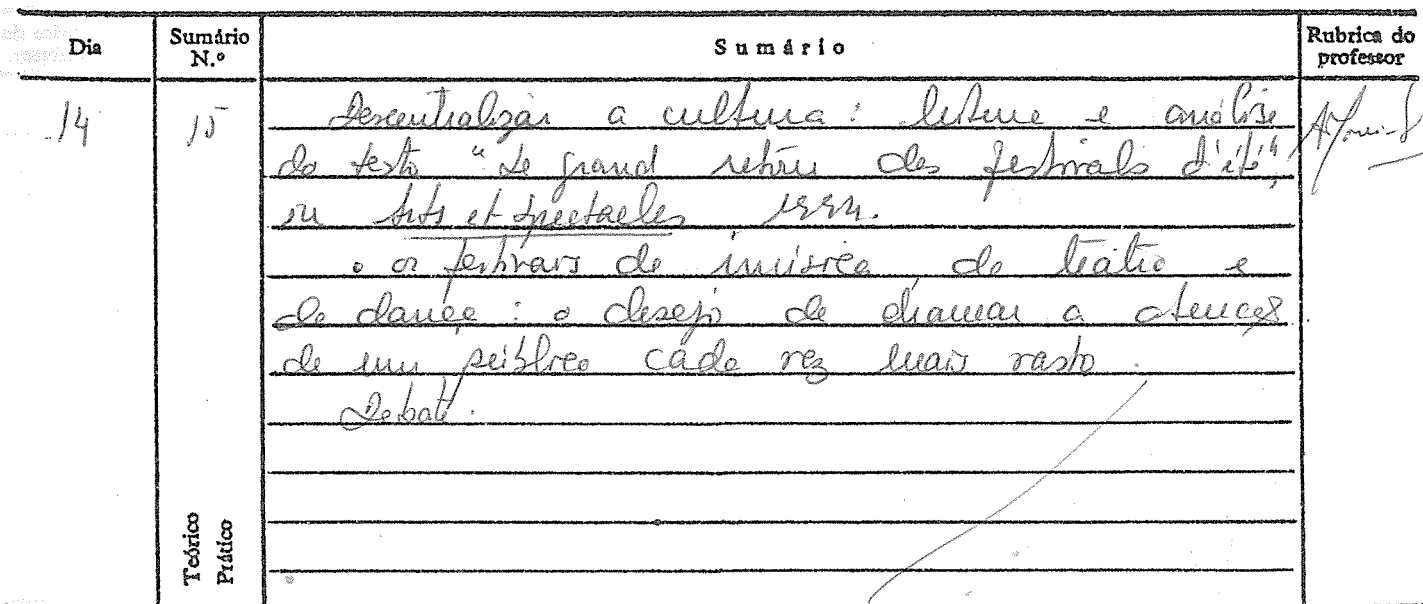 Dia Sumário N.º Sumário Rubrica do professor
14 15 Descentralizar a cultura : leitura e análise
do texto "Le grand retour des festivals d'été",
in Arts et Spectacles 1994.
• os festivais de música, de teatro e
de dança : o desejo de chamar a atenção
de um público cada vez mais vasto.
Debate.
Teórico
Prático